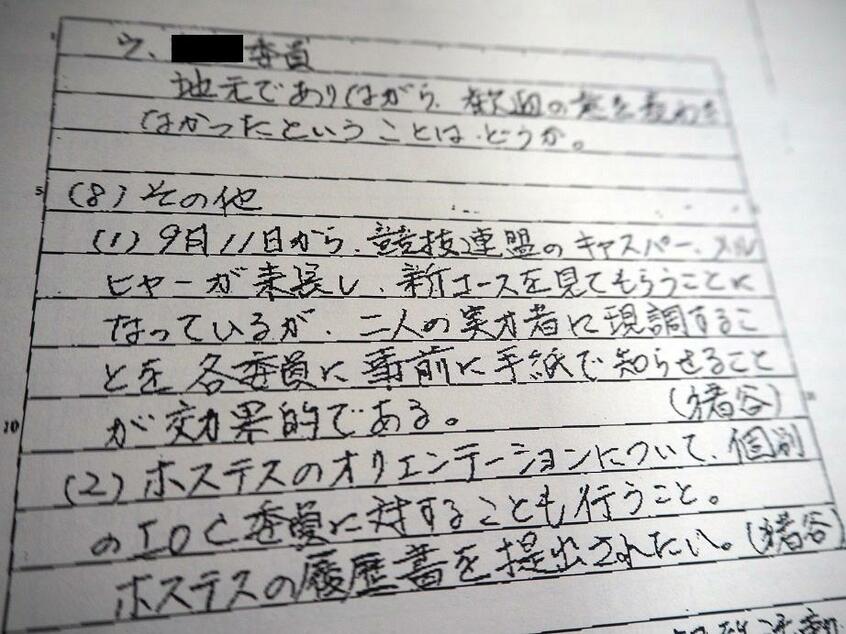 ウ. 委員
地元でありながら、歓迎の意を表わさ
なかったということはどうか。
5 (8) その他
(1) 9月11日から、競技連盟のキャスパー、スル
ヒャーが来長し、新コースを見てもらうことに
なっているが、二人の実力者に現調するこ
とを各委員に事前に手紙で知らせること
10 が効果的である。 (猪谷)
(2) ホステスのオリエンテーションについて、個別
のIOC委員に対することも行うこと。
ホステスの履歴書を提出されたい。(猪谷)